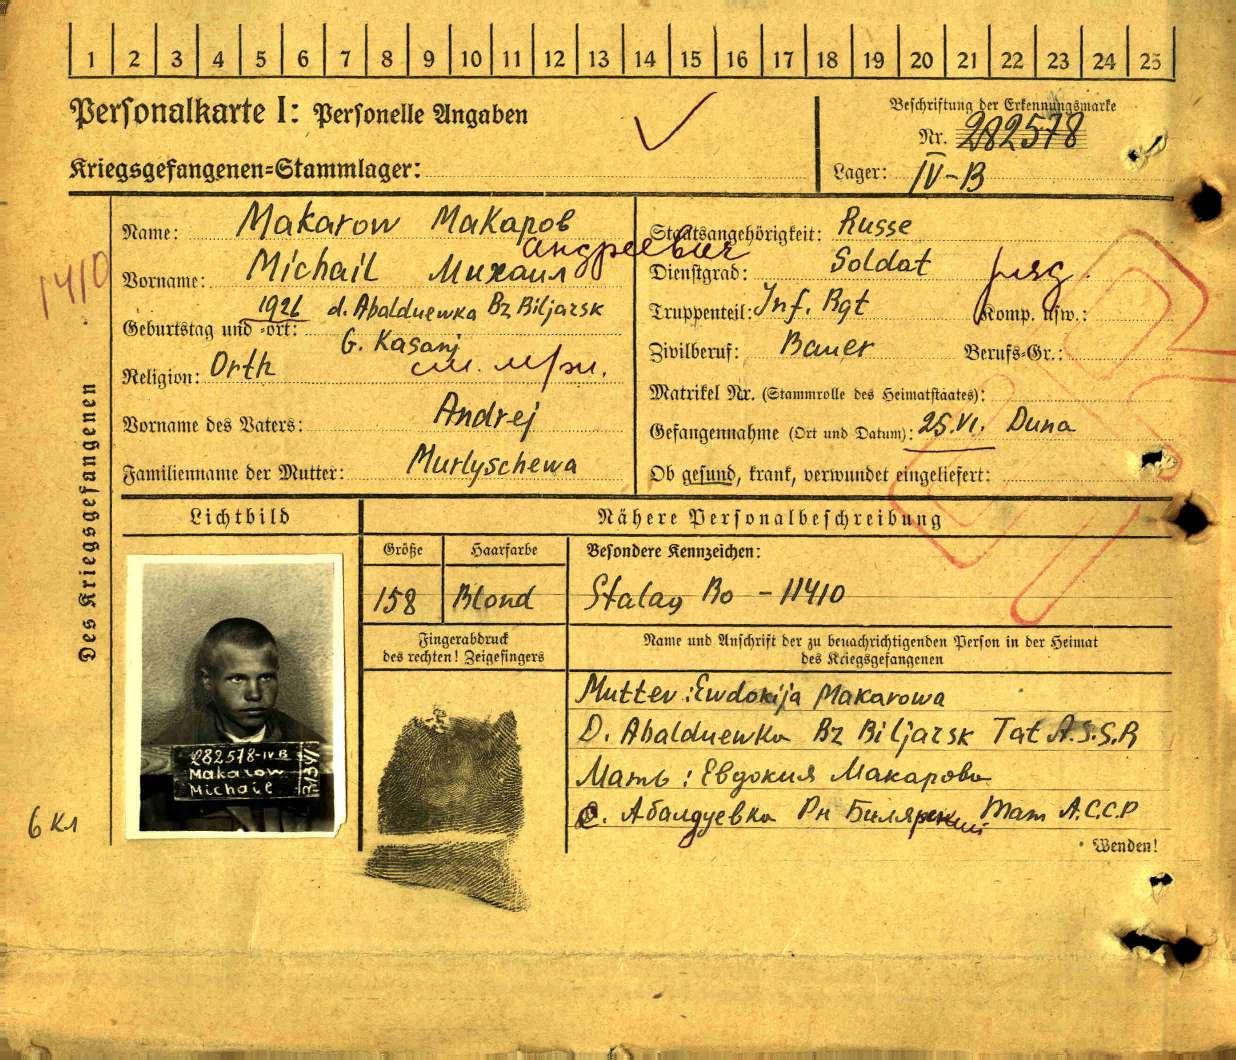 1 2 3 4 5 6 7 8 9 10 11 12 13 14 15 16 17 18 19 20 21 22 23 24 25
Personalkarte I: Personelle Angaben
Beschriftung der Erkennungsmarke
Nr. 282578
Kriegsgefangenen-Stammlager:
Lager: IV-B
Des Kriegsgefangenen
Name: Makarow Макаров
Андреевич
Vorname: Michail Михаил
1926 d. Abalduewka Bz Biljarsk
Geburtstag und -ort:
G. Kasanj
Religion: Orth
Vorname des Vaters: Andrej
Familienname der Mutter: Murlyschewa
Staatsangehörigkeit: Russe
Dienstgrad: Soldat
Truppenteil: Inf. Rgt Komp. usw.:
Zivilberuf: Bauer Berufs-Gr.:
Matrikel Nr. (Stammrolle des Heimatstaates):
Gefangennahme (Ort und Datum): 25.VI. Duna
Ob gesund, krank, verwundet eingeliefert:
Lichtbild
282578-IV B
Makarow
Michail
Nähere Personalbeschreibung
Größe Haarfarbe Besondere Kennzeichen:
158 Blond Stalag Bo - 11410
Fingerabdruck
des rechten! Zeigefingers
Name und Anschrift der zu benachrichtigenden Person in der Heimat
des Kriegsgefangenen
Mutter: Ewdokija Makarowa
D. Abalduewka Bz Biljarsk Tat A.S.S.R
Мать: Евдокия Макарова
с. Абалдуевка Рн Билярский Тат А.С.С.Р
Wenden!
6 кл